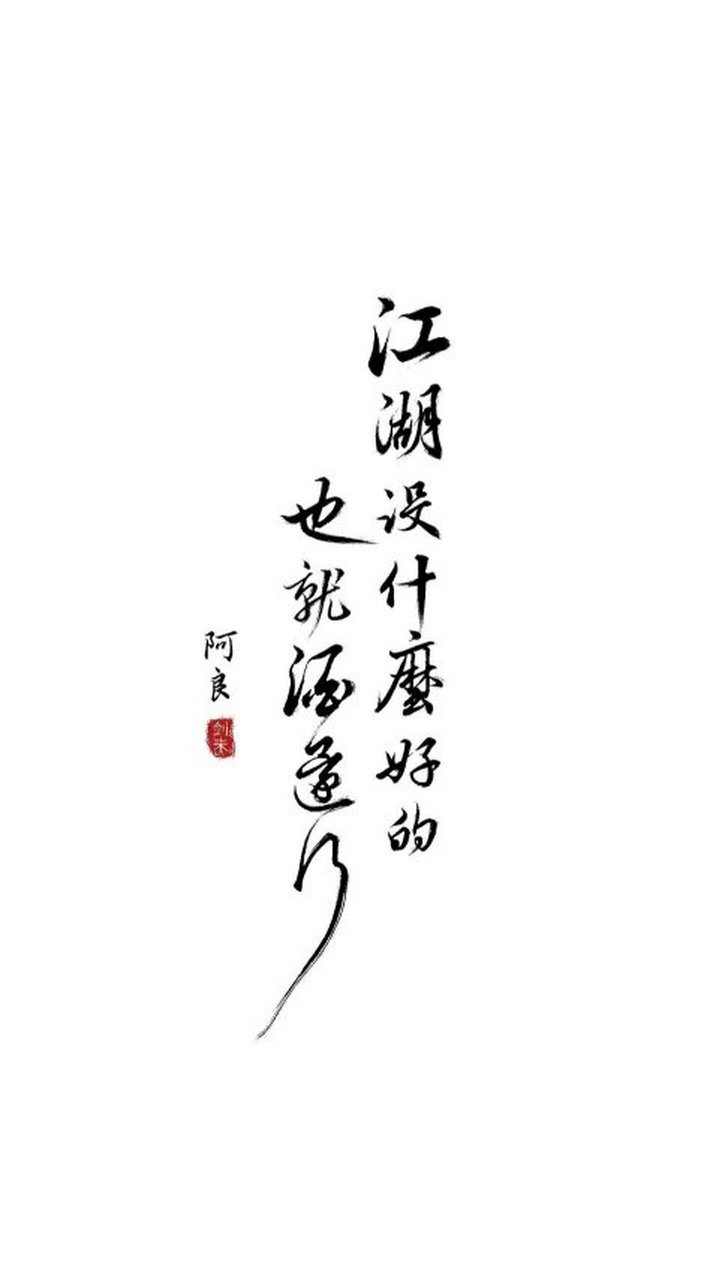 江湖没什麼好的
也就酒还行
阿良
剑来